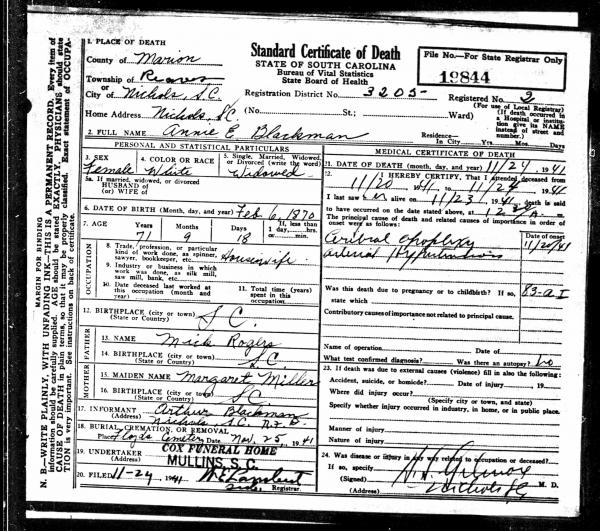 N. B.—WRITE PLAINLY, WITH UNFADING INK—THIS IS A PERMANENT RECORD. Every item of
information should be carefully supplied. AGE should be stated EXACTLY. PHYSICIANS should state
CAUSE OF DEATH in plain terms, so that it may be properly classified. Exact statement of OCCUPA-
TION is very important. See instructions on back of certificate.
MARGIN FOR BINDING
1. PLACE OF DEATH
County of Marion
Township of Reaves
or
City of Nichols, S.C.
Home Address Nichols, S.C.
Standard Certificate of Death
STATE OF SOUTH CAROLINA
Bureau of Vital Statistics
State Board of Health
Registration District No. 3205-
(No. St.; Ward)
File No.—For State Registrar Only
19844
Registered No. 2
(For use of Local Registrar)
(If death occurred in
a Hospital or institu-
tion give its NAME
instead of street and
number.)
2. FULL NAME Annie E. Blackman
Residence—
In City Yrs. Mos. Days
PERSONAL AND STATISTICAL PARTICULARS
3. SEX
Female
4. COLOR OR RACE
White
5. Single, Married, Widowed,
or Divorced (write the word)
Widowed
5a. If married, widowed, or divorced
HUSBAND of
(or) WIFE of
6. DATE OF BIRTH (Month, day, and year) Feb 6, 1870
7. AGE
Years
71
Months
9
Days
18
If less than
1 day, hrs.
or min.
OCCUPATION
8. Trade, profession, or particular
kind of work done, as spinner,
sawyer, bookkeeper, etc. Housewife
9. Industry or business in which
work was done, as silk mill,
saw mill, bank, etc.
10. Date deceased last worked at
this occupation (month and
year)
11. Total time (years)
spent in this
occupation
12. BIRTHPLACE (city or town)
(State or Country) S.C.
FATHER
13. NAME Mick Rogers
14. BIRTHPLACE (city or town)
(State or Country) S.C.
MOTHER
15. MAIDEN NAME Margaret Miller
16. BIRTHPLACE (city or town)
(State or Country) S.C.
17. INFORMANT Arthur Blackman
(Address) Nichols S.C. R.F.D.
18. BURIAL, CREMATION, OR REMOVAL
Place Floyds Cemetery Date Nov. 25, 1941
19. UNDERTAKER COX FUNERAL HOME
(Address) MULLINS, S.C.
20. FILED 11-29, 1941
Registrar.
MEDICAL CERTIFICATE OF DEATH
21. DATE OF DEATH (month, day, and year) 11/24, 1941
22. I HEREBY CERTIFY, That I attended deceased from
11/20, 1941, to 11/24, 1941
I last saw er alive on 11/23, 1941, death is said
to have occurred on the date stated above, at A. m.
The principal cause of death and related causes of importance in order of
onset were as follows:
Date of onset
Cerebral apoplexy 11/20/41
Arterial Hypertension
Was this death due to pregnancy or to childbirth? If so, 83-a I
state which
Contributory causes of importance not related to principal cause:
Name of operation Date of
What test confirmed diagnosis? Was there an autopsy? No
23. If death was due to external causes (violence) fill in also the following:
Accident, suicide, or homicide? Date of injury 19
Where did injury occur?
(Specify city, or town, and state)
Specify whether injury occurred in industry, in home, or in public place.
Manner of injury
Nature of injury
24. Was disease or injury in any way related to occupation of deceased?
If so, specify
(Signed) M. D.
(Address) Nichols SC